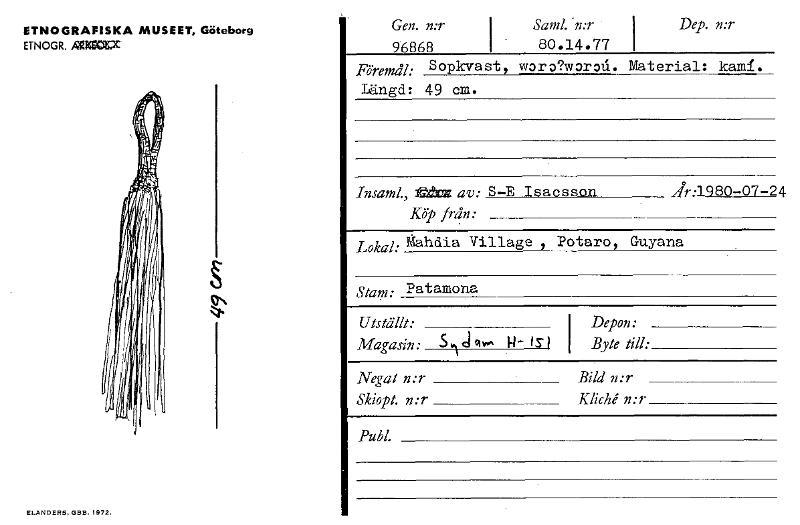 ETNOGRAFISKA MUSEET, Göteborg
ETNOGR.
49 cm
ELANDERS. GBB. 1972.
Gen. n:r Saml. n:r Dep. n:r
96868 80.14.77
Föremål: Sopkvast, wɔrɔ?wɔrɔú. Material: kamí.
Längd: 49 cm.
Insaml., av: S-E Isacsson År:1980-07-24
Köp från:
Lokal: Mahdia Village, Potaro, Guyana
Stam: Patamona
Utställt: Depon:
Magasin: Sydam H-151 Byte till:
Negat n:r Bild n:r
Skiopt. n:r Kliché n:r
Publ.